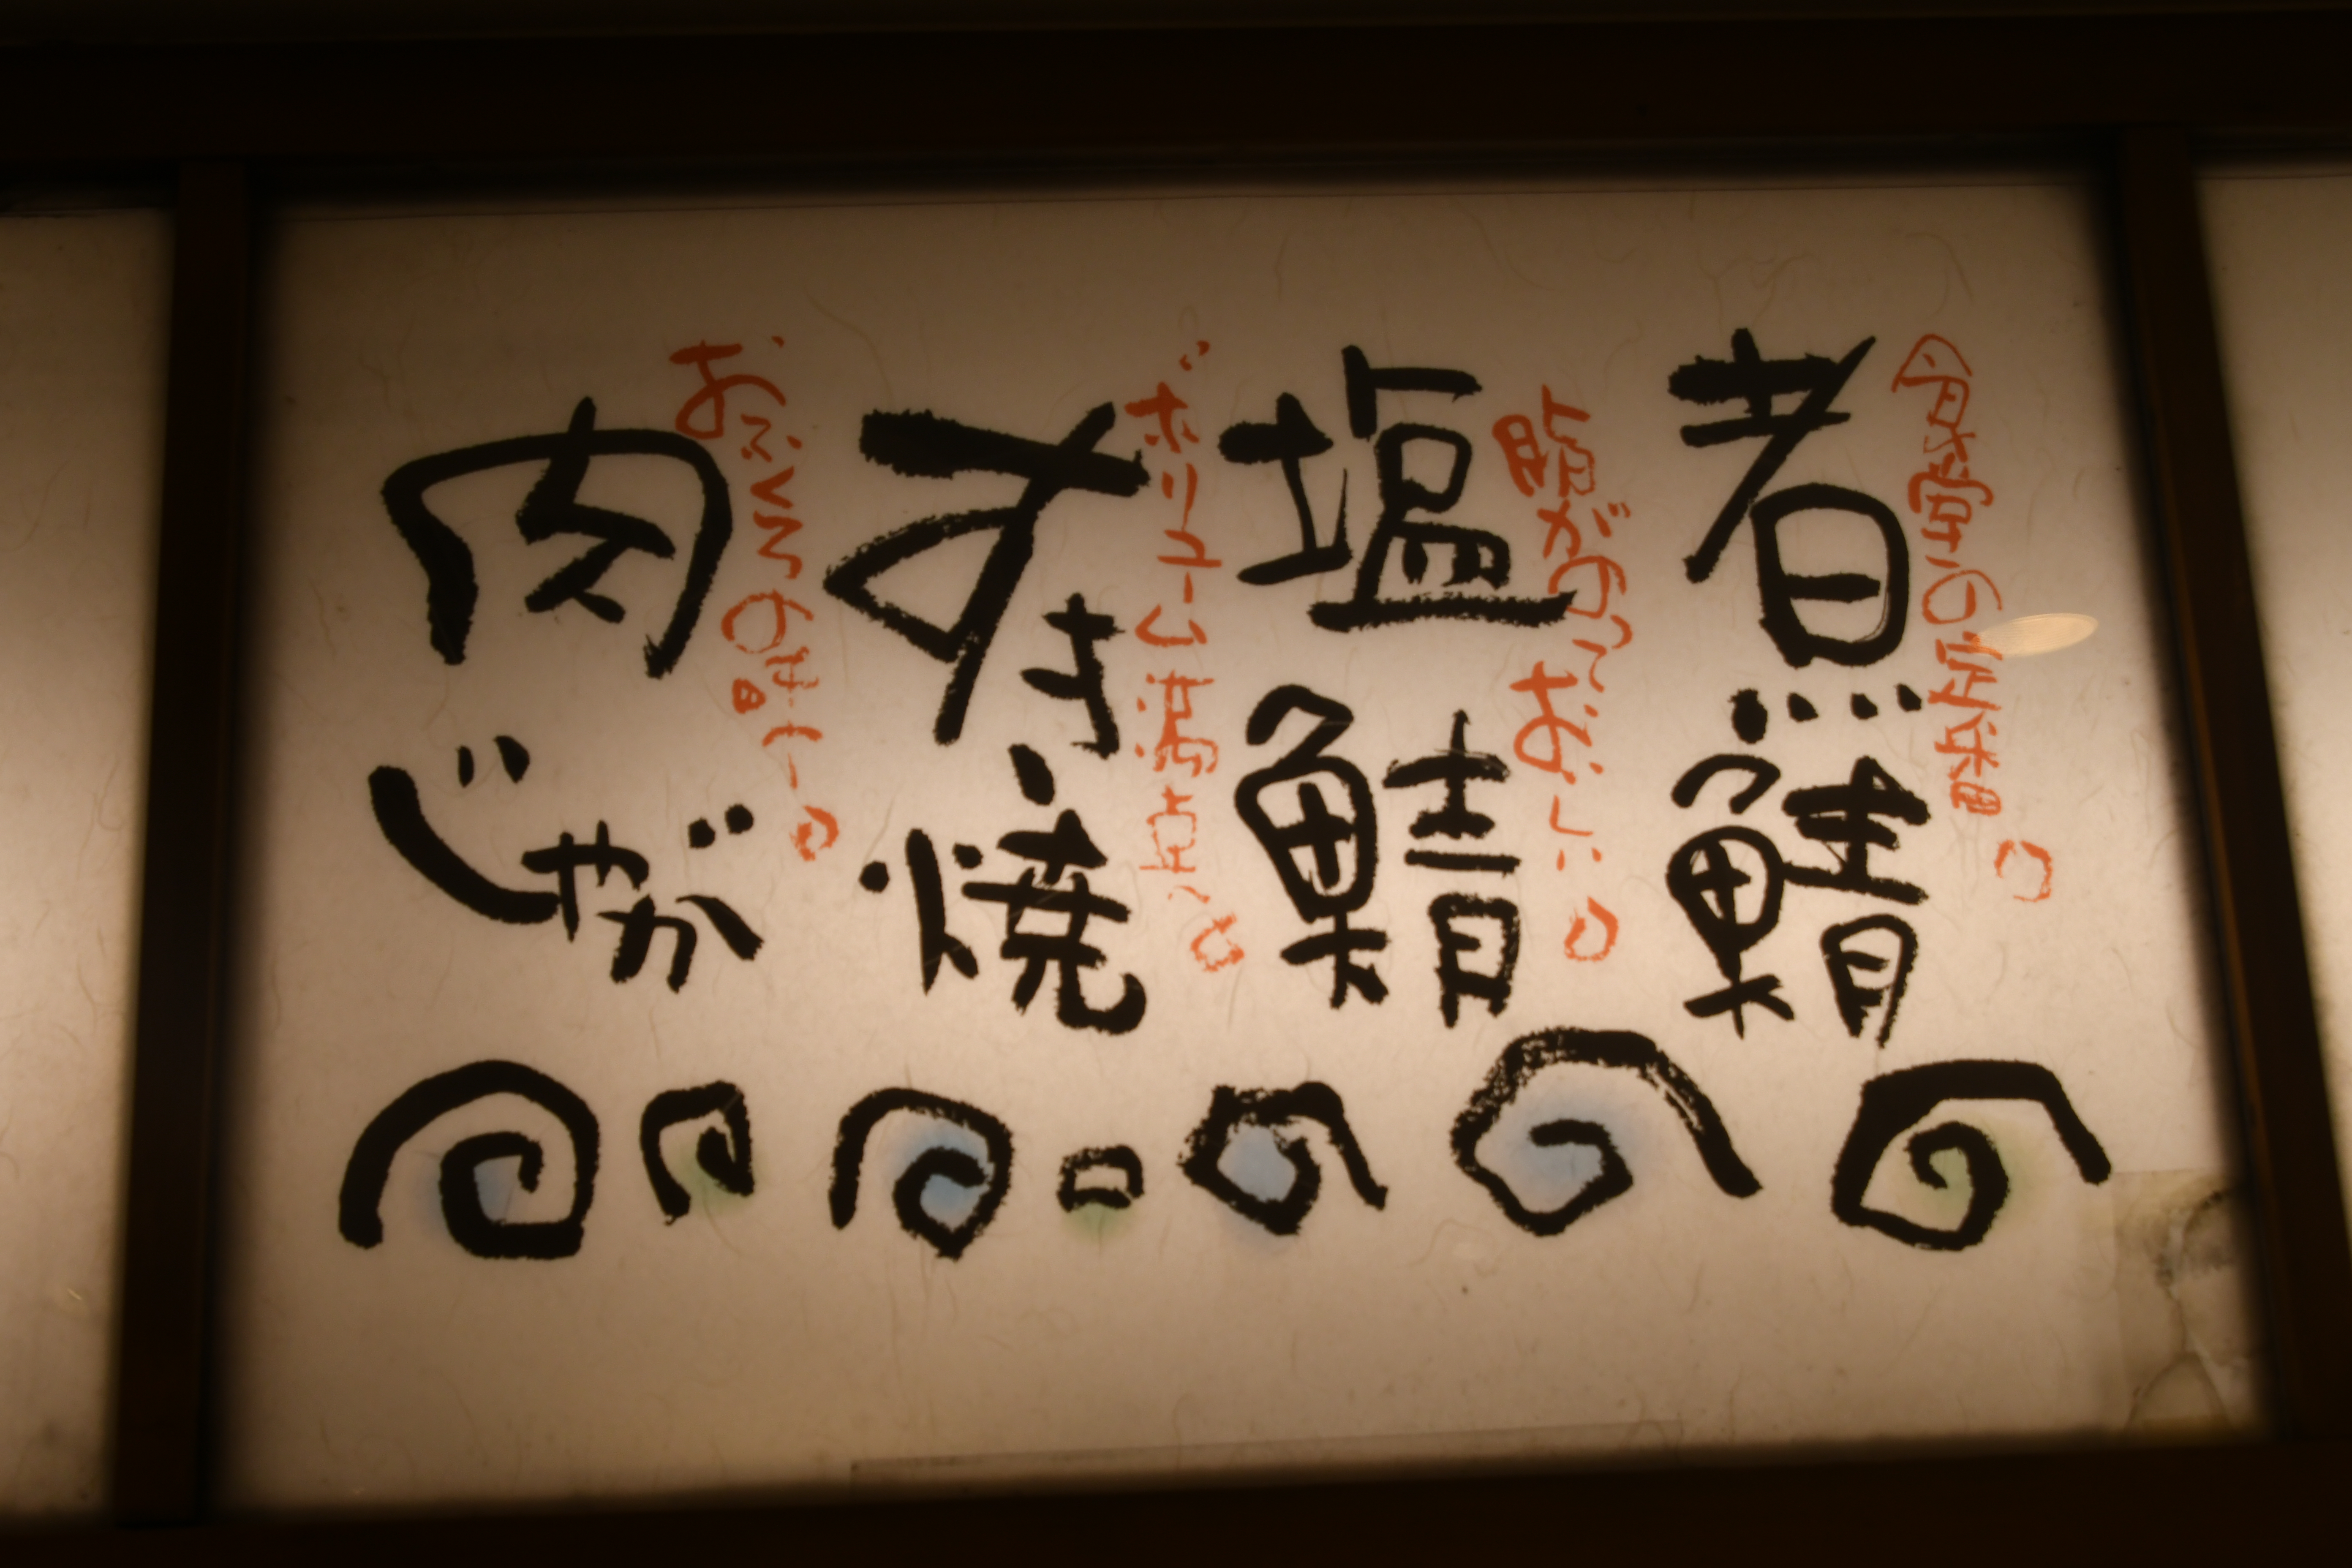 食堂の定番
煮鯖
脂がのっておいしい
塩鯖
ボリューム満点
すき焼
おふくろの味
肉じゃが